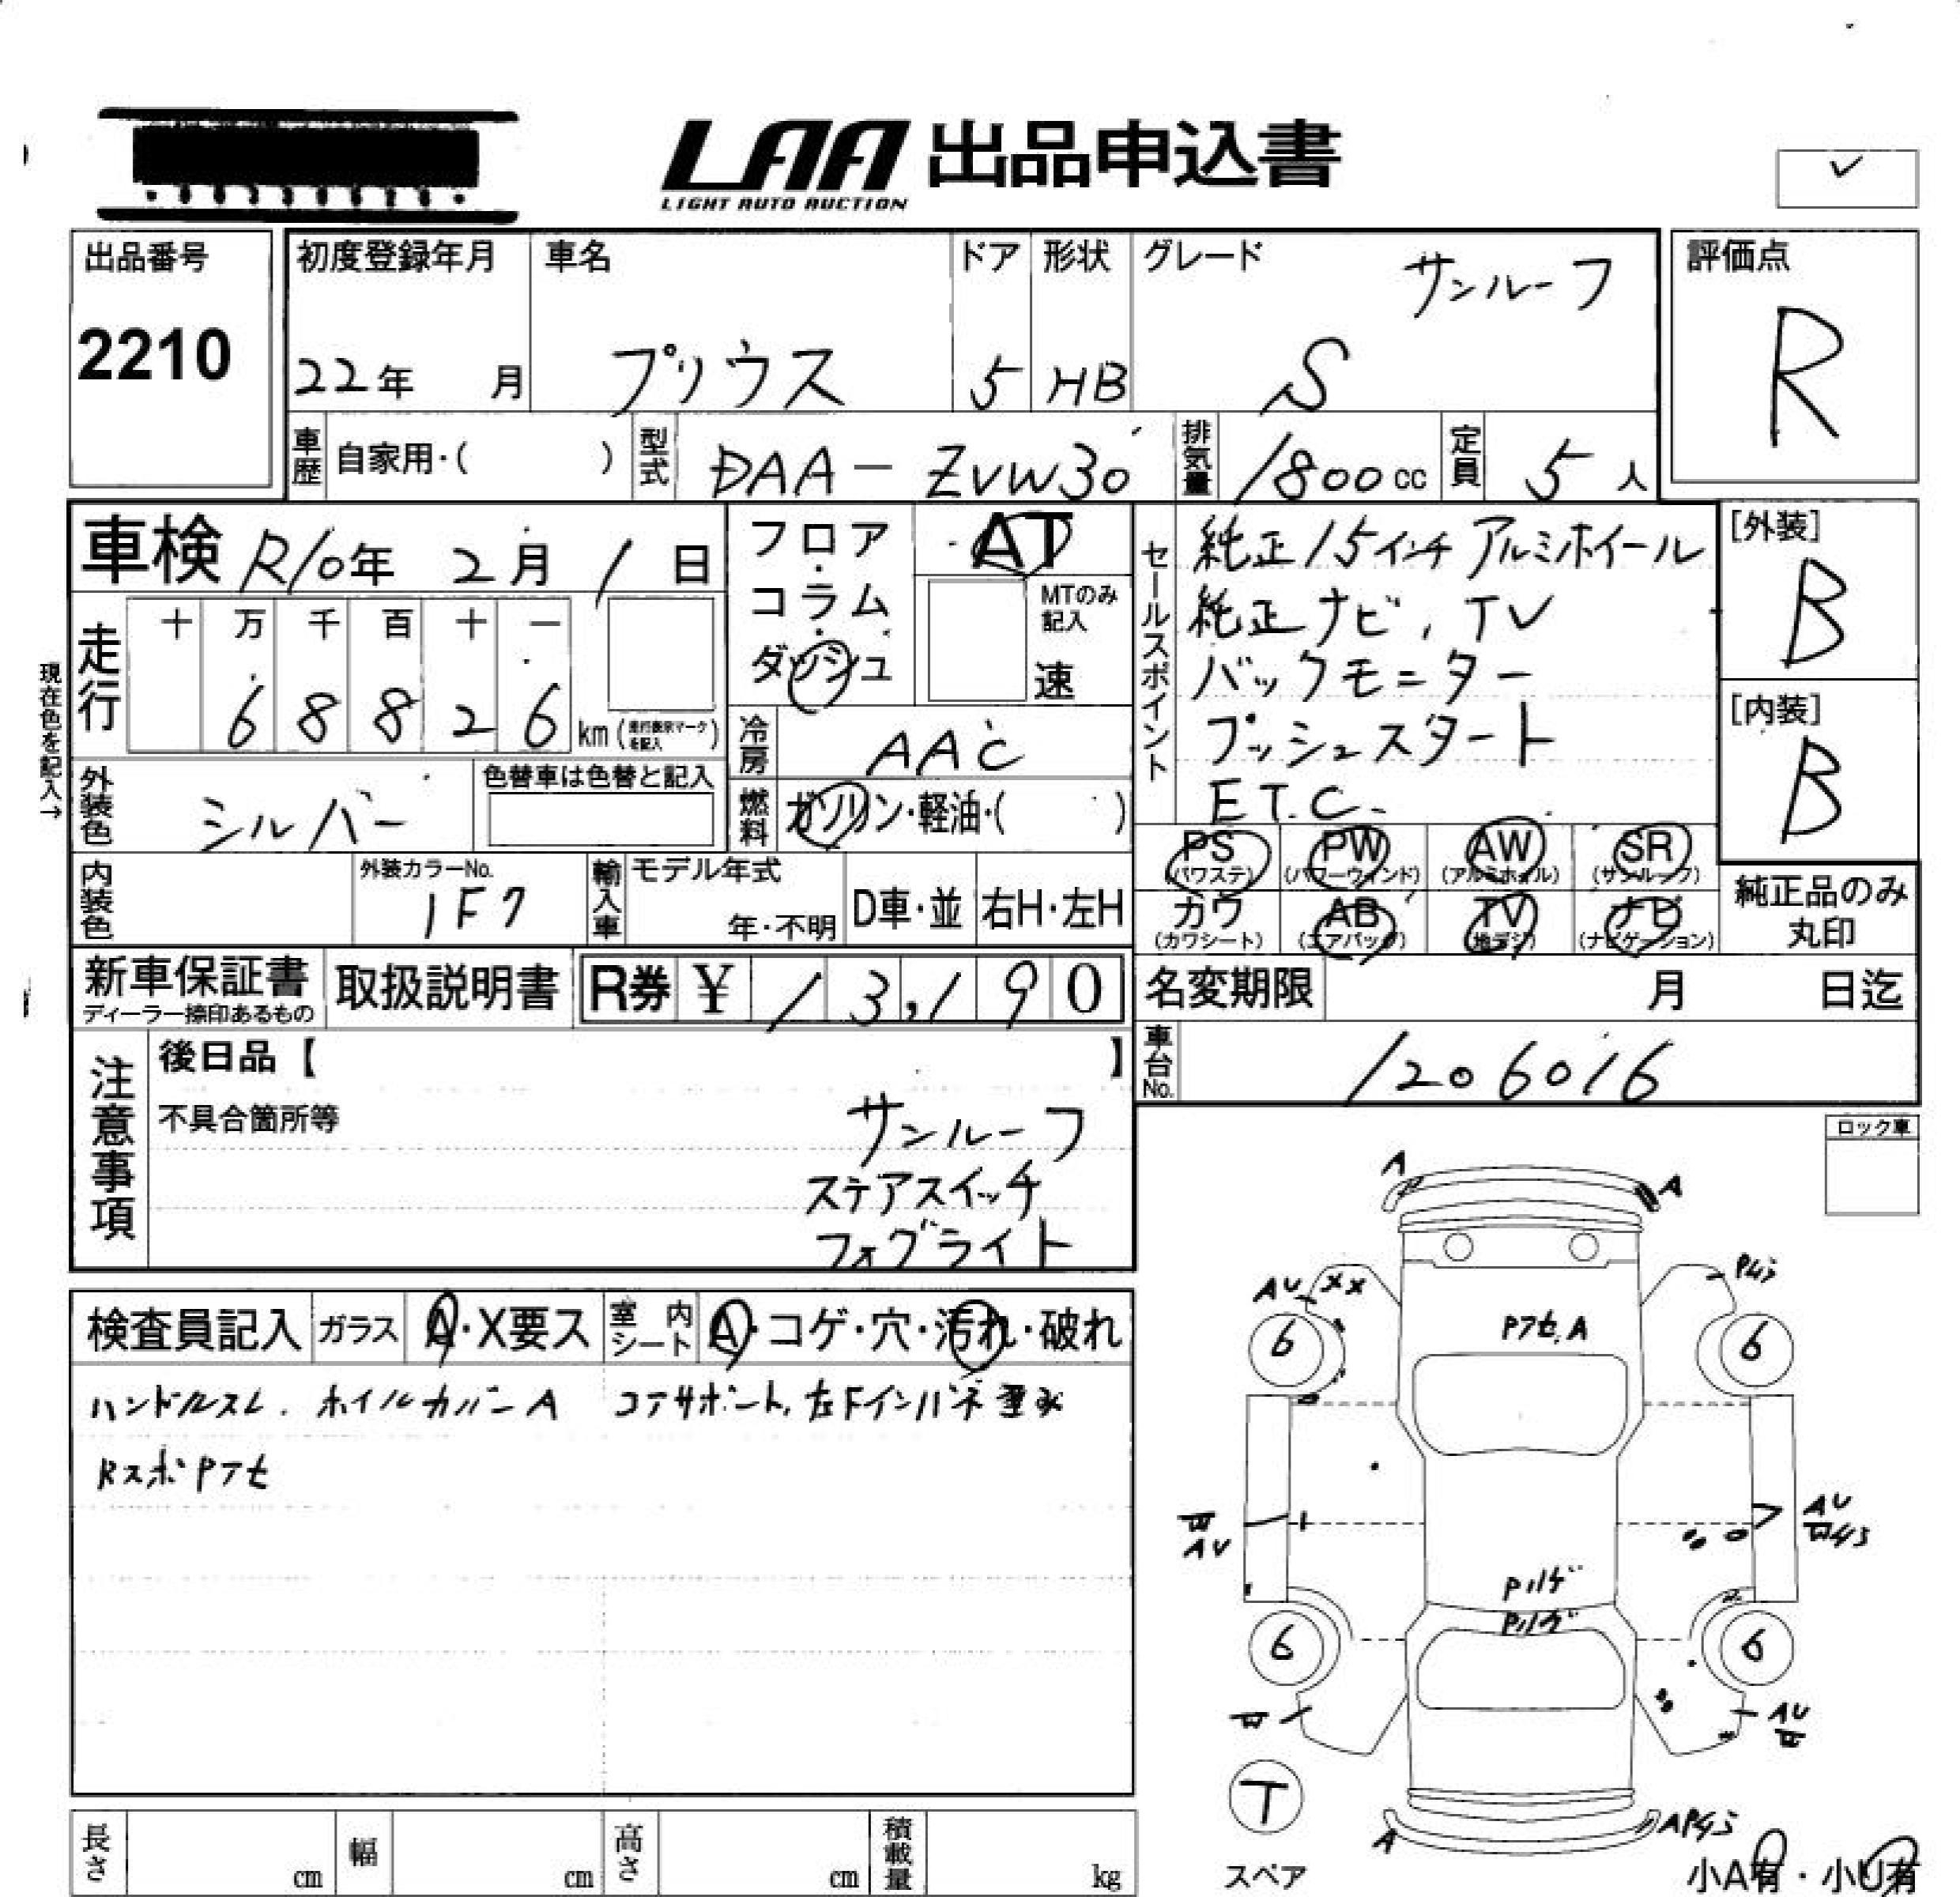 LAA 出品申込書
LIGHT AUTO AUCTION
✓
出品番号
2210
初度登録年月
22年 月
車名
プリウス
ドア
5
形状
HB
グレード
サンルーフ
S
評価点
R
車歴 自家用・( )
型式 DAA-ZVW30
排気量 1800cc
定員 5人
車検 R10年 2月 1日
フロア・コラム・ダッシュ
AT
MTのみ記入
速
セールスポイント
純正15インチアルミホイール
純正ナビ, TV
バックモニター
プッシュスタート
E.T.C.
[外装]
B
[内装]
B
現在色を記入→
走行
十 万 千 百 十 一
6 8 8 2 6 km (走行表示マークを記入)
冷房 AAC
外装色 シルバー
色替車は色替と記入
燃料 ガソリン・軽油・( )
PS (パワステ)
PW (パワーウィンド)
AW (アルミホイル)
SR (サンルーフ)
カワ (カワシート)
AB (エアバッグ)
TV (地デジ)
ナビ (ナビゲーション)
純正品のみ丸印
内装色
外装カラーNo.
1F7
輸入車
モデル年式
年・不明
D車・並
右H・左H
新車保証書
ディーラー捺印あるもの
取扱説明書
R券 ¥ 13,190
名変期限 月 日迄
車台No. 1206016
注意事項
後日品【 】
不具合箇所等
サンルーフ
ステアスイッチ
フォグライト
ロック車
検査員記入
ガラス A・X要ス
室内シート A・コゲ・穴・汚れ・破れ
ハンドルスレ. ホイルカバーA コアサポート, 左Fインパネ歪み
RスポPアセ
A
A
AU XX
Pキズ
6
Pアセ.A
6
W
AU
AU
Wキズ
Pハゲ
Pハゲ
6
6
W
AU
W
T
スペア
A
APキズ
小A有・小U有
長さ cm
幅 cm
高さ cm
積載量 kg